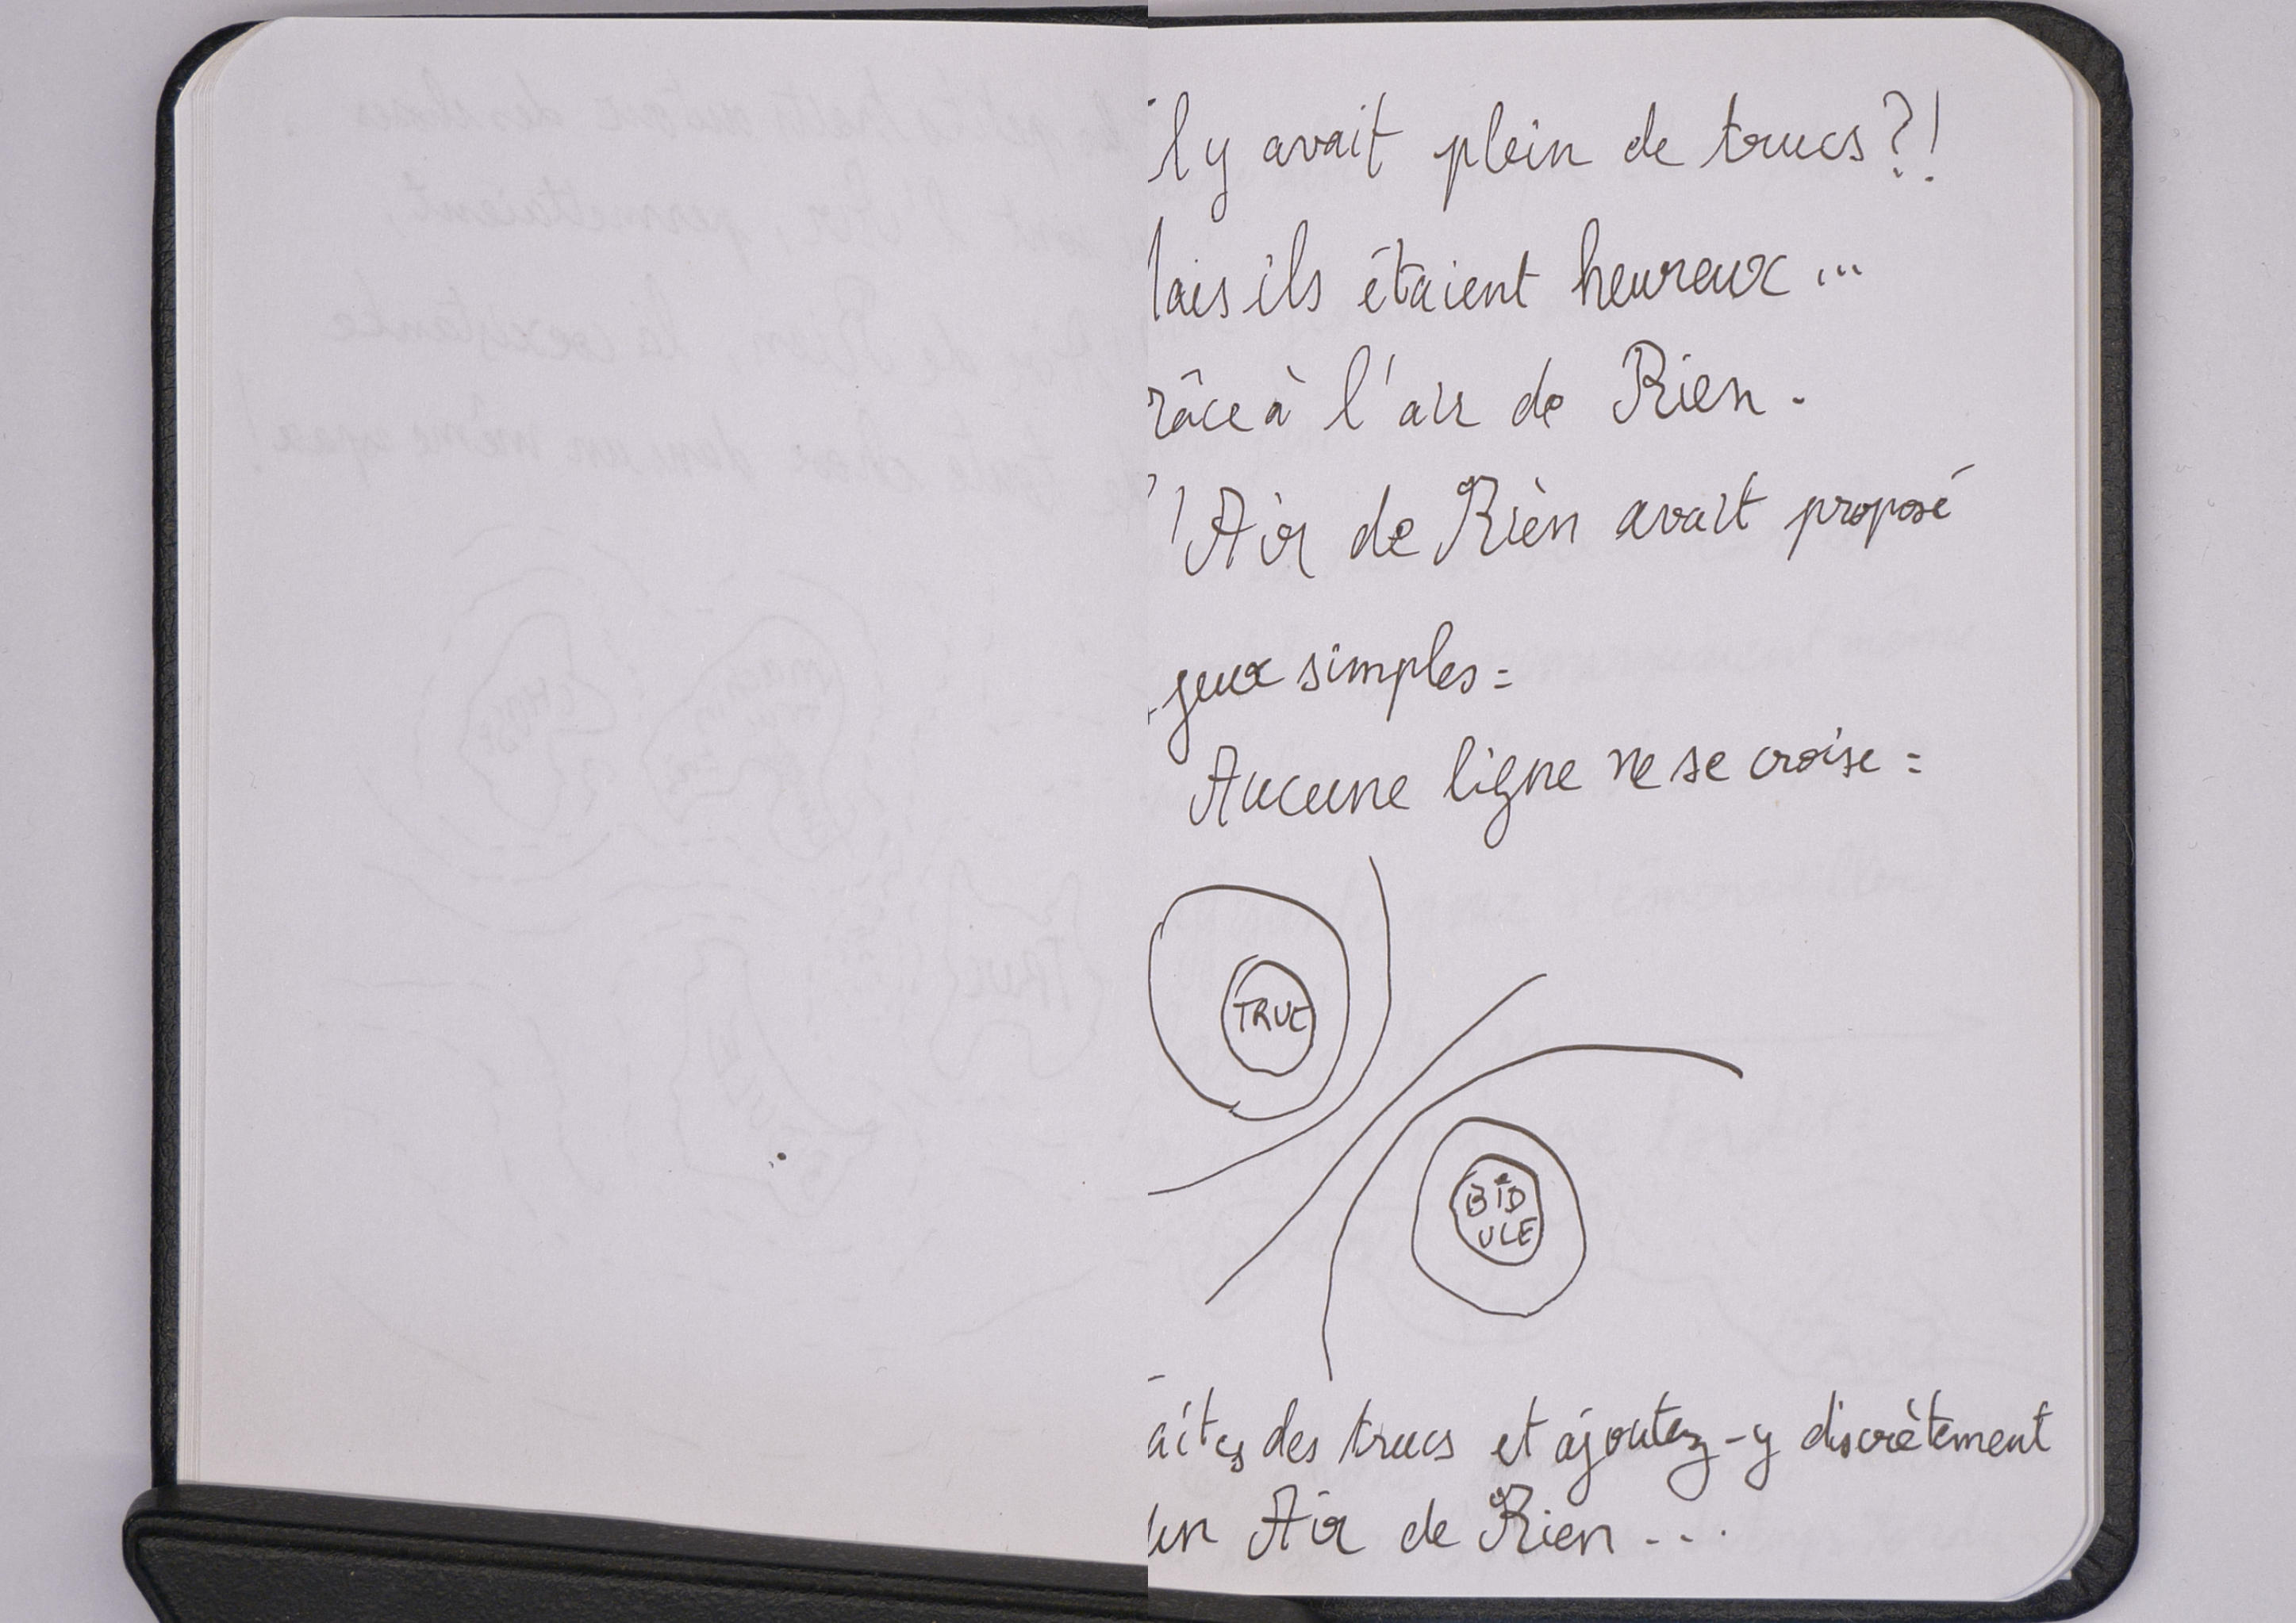 l y avait plein de trucs ?!
ais ils étaient heureux ...
râce à l'air de Rien.
l'Air de Rien avait proposé
jeux simples :
Aucune ligne ne se croise :
TRUC
BID
ULE
aites des trucs et ajoutez-y discrètement
un Air de Rien ...